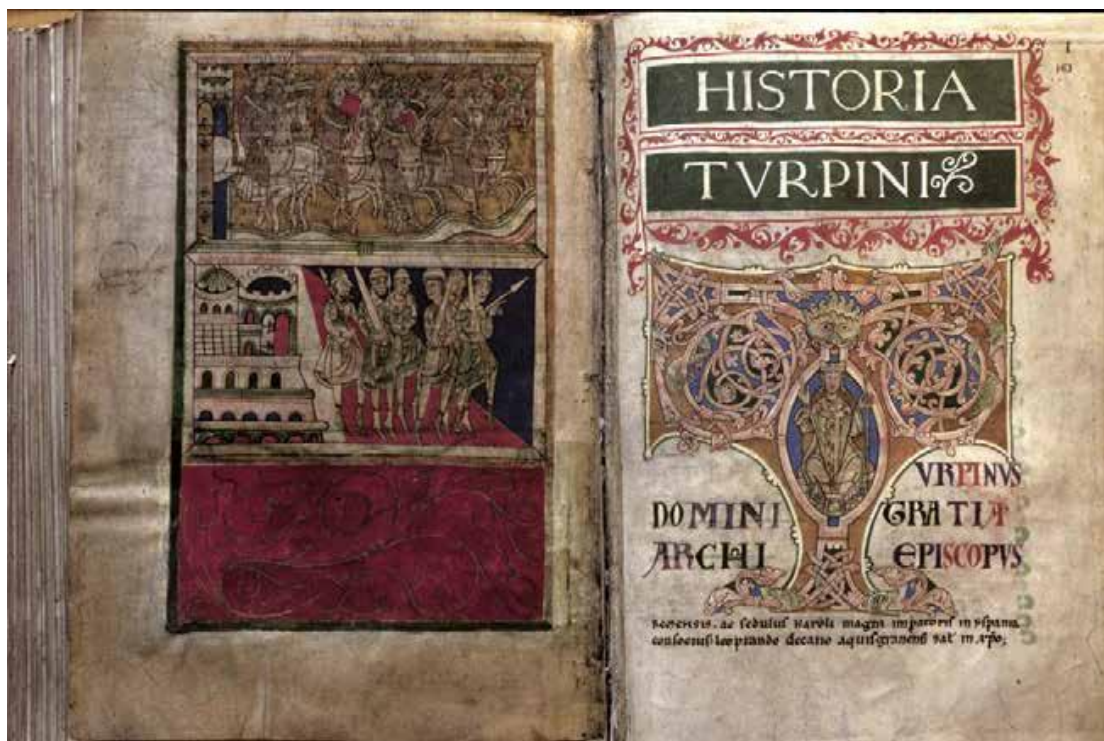 HISTORIA
TVRPINI
TVRPINVS
DOMINI GRATIA
ARCHI EPISCOPVS
ac sedulus karoli magni impatoris in yspania
consocius leoprando decano aquisgranensi sal in xpo;